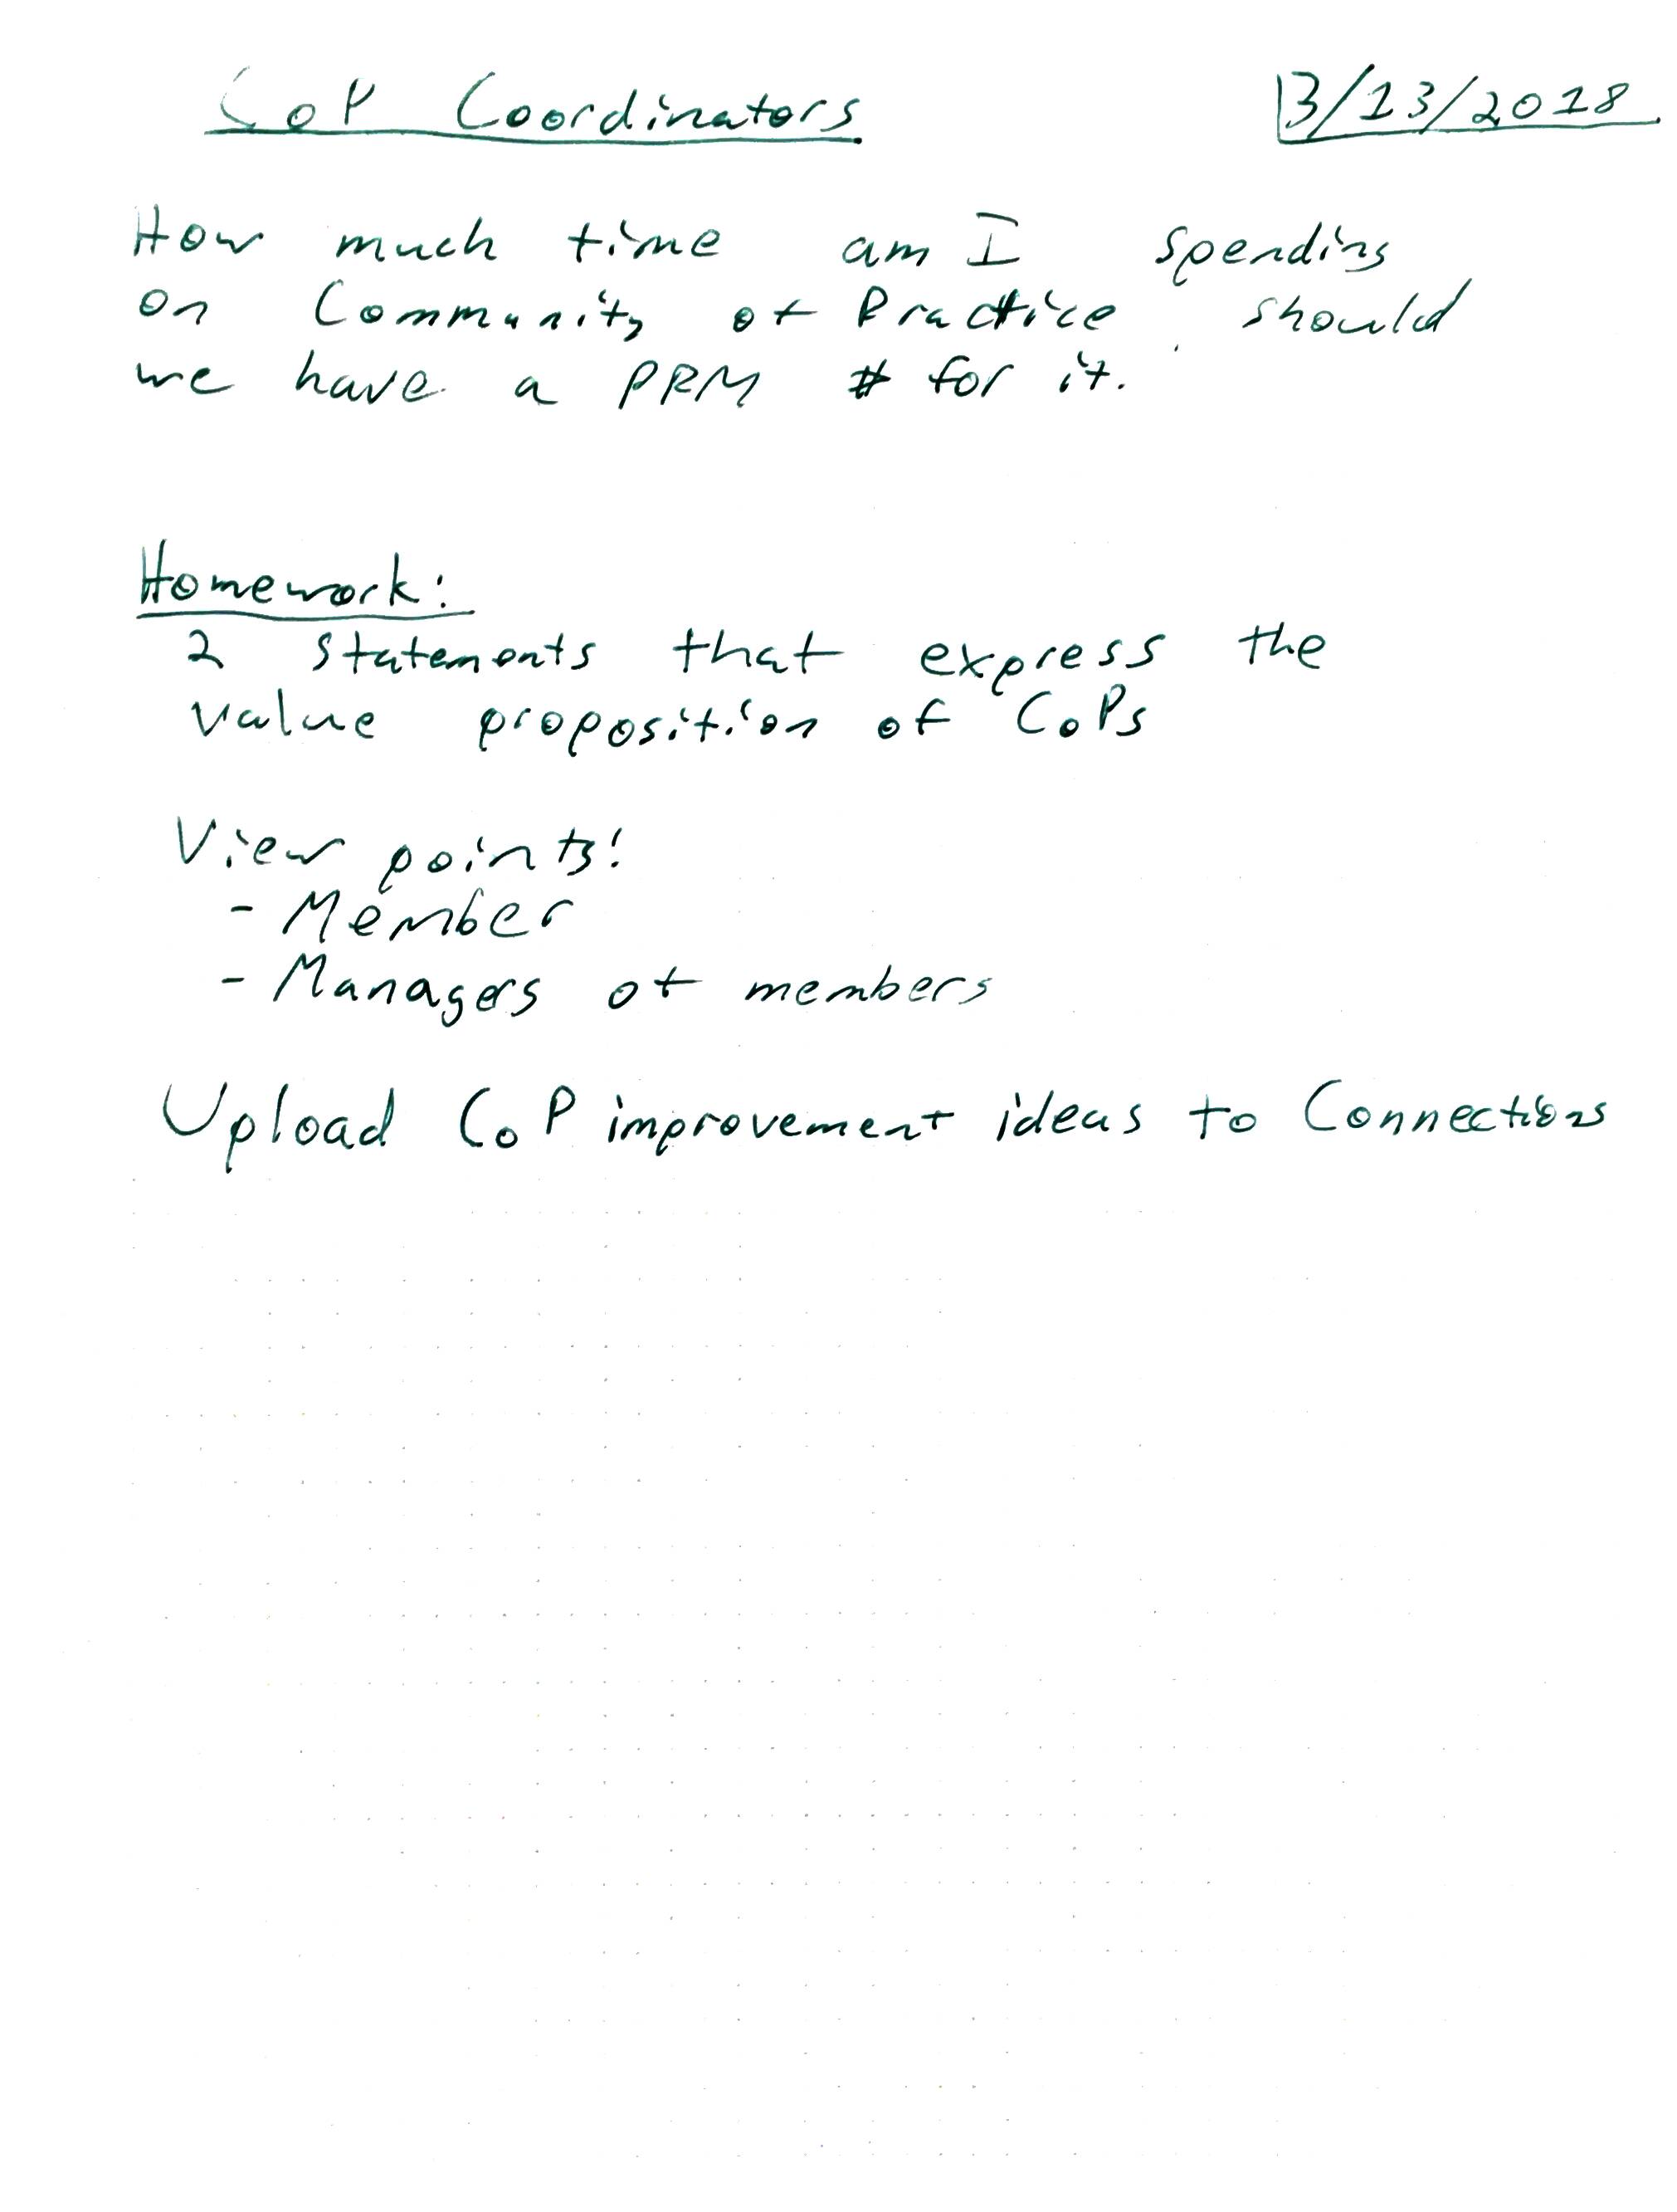 CoP Coordinators 3/13/2018
How much time am I spending
on Community of Practice. should
we have a PRM # for it.
Homework:
2 statements that express the
value proposition of CoPs
View points:
- Member
- Managers of members
Upload CoP improvement ideas to Connections